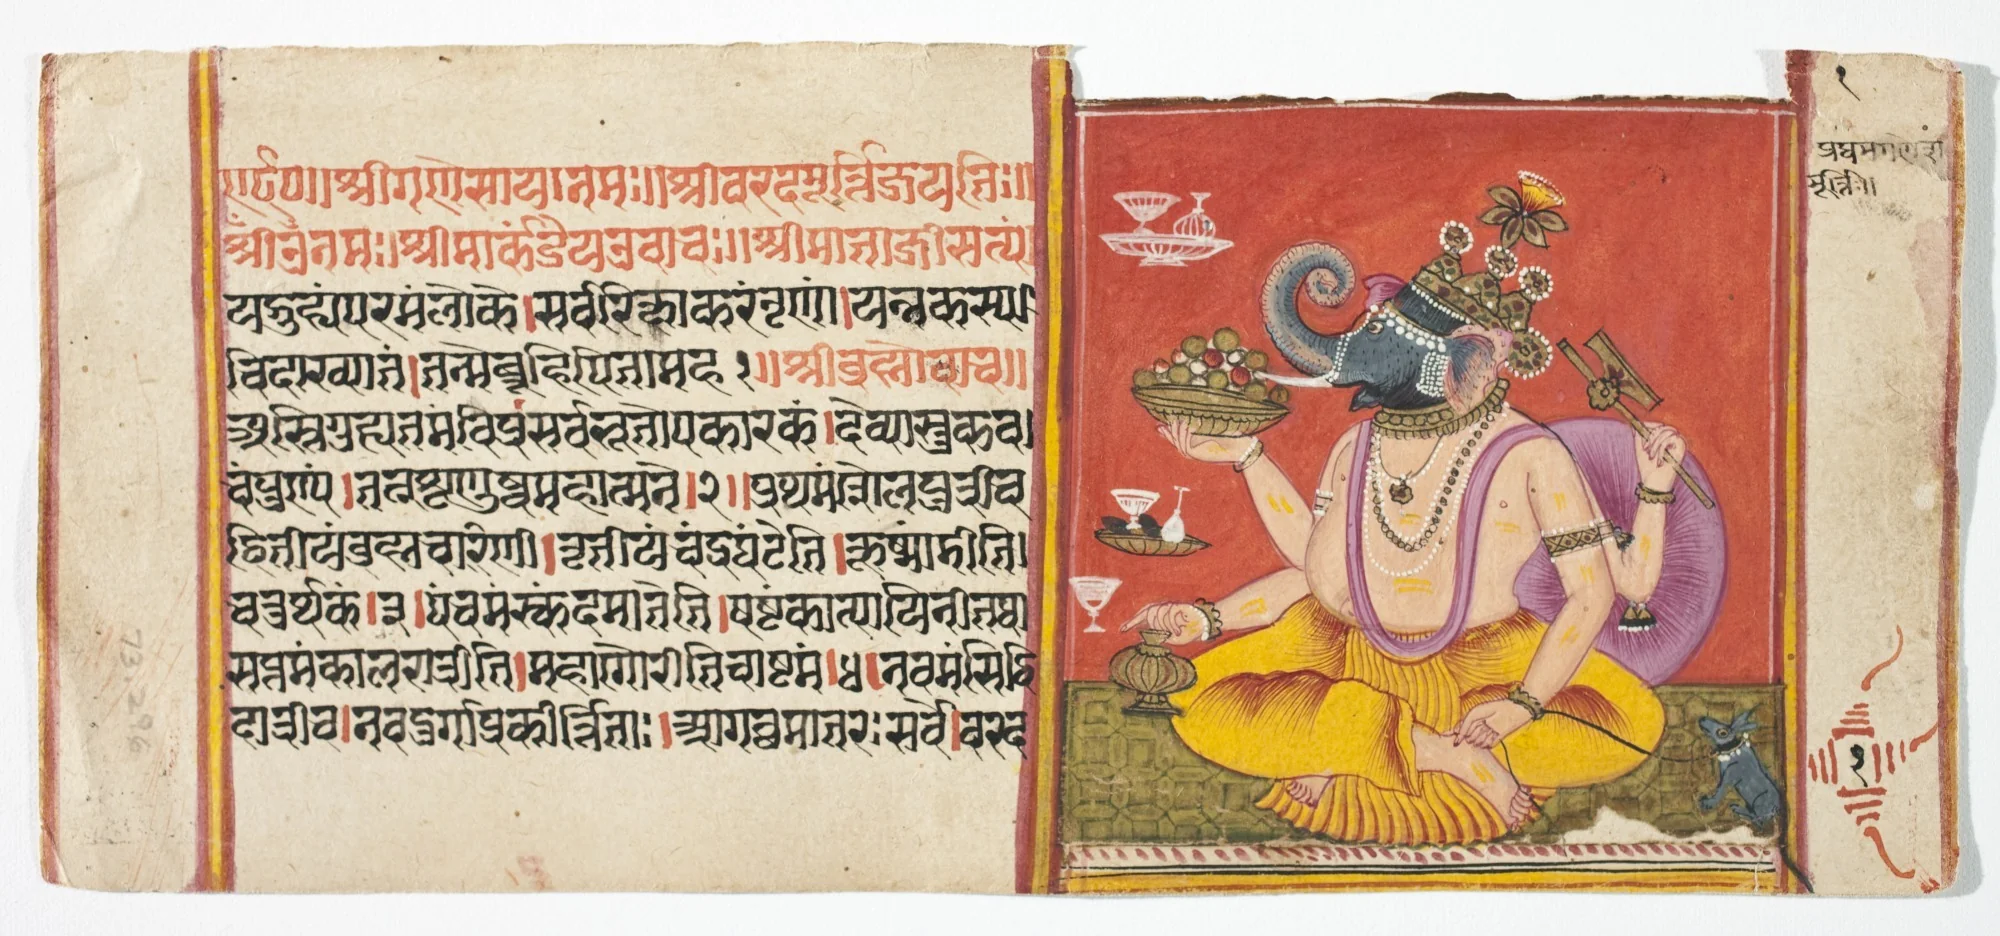 ॥श्रीगणेसायनमः॥श्रीवरदमूर्त्तिजयतिः॥
श्री नमः॥श्रीमार्कंडेयउवाचः॥श्रीमाताजीसत्य
यद्गुह्यंपरमंलोके।सर्वरक्षाकरंनृणां।यन्नकस्य
चिदाख्यातं।तन्मेब्रूहिपितामह१॥श्रीब्रह्मोवाच॥
अस्तिगुह्यतमंविप्रसर्वभूतोपकारकं।देव्यास्तुकव
चंपुण्यं।तत्च्छृणुष्वमहात्मने।२॥प्रथमंशैलपुत्रीच
द्वितीयंब्रह्मचारिणी।तृतीयंचंद्रघंटेति।कूष्मांडीति।
चतुर्थकं।३।पंचमंस्कंदमातेति।षष्टंकात्यायिनीतथा
सप्तमंकालरात्रीति।महागौरीतिचाष्टमं।४।नवमंसिद्धि
दात्रीच।नवदुर्गाप्रकीर्त्तिताः।आगछमातरःसर्वे।वरद
१
प्रथमगणेश
मूर्त्ति॥
१
73.296